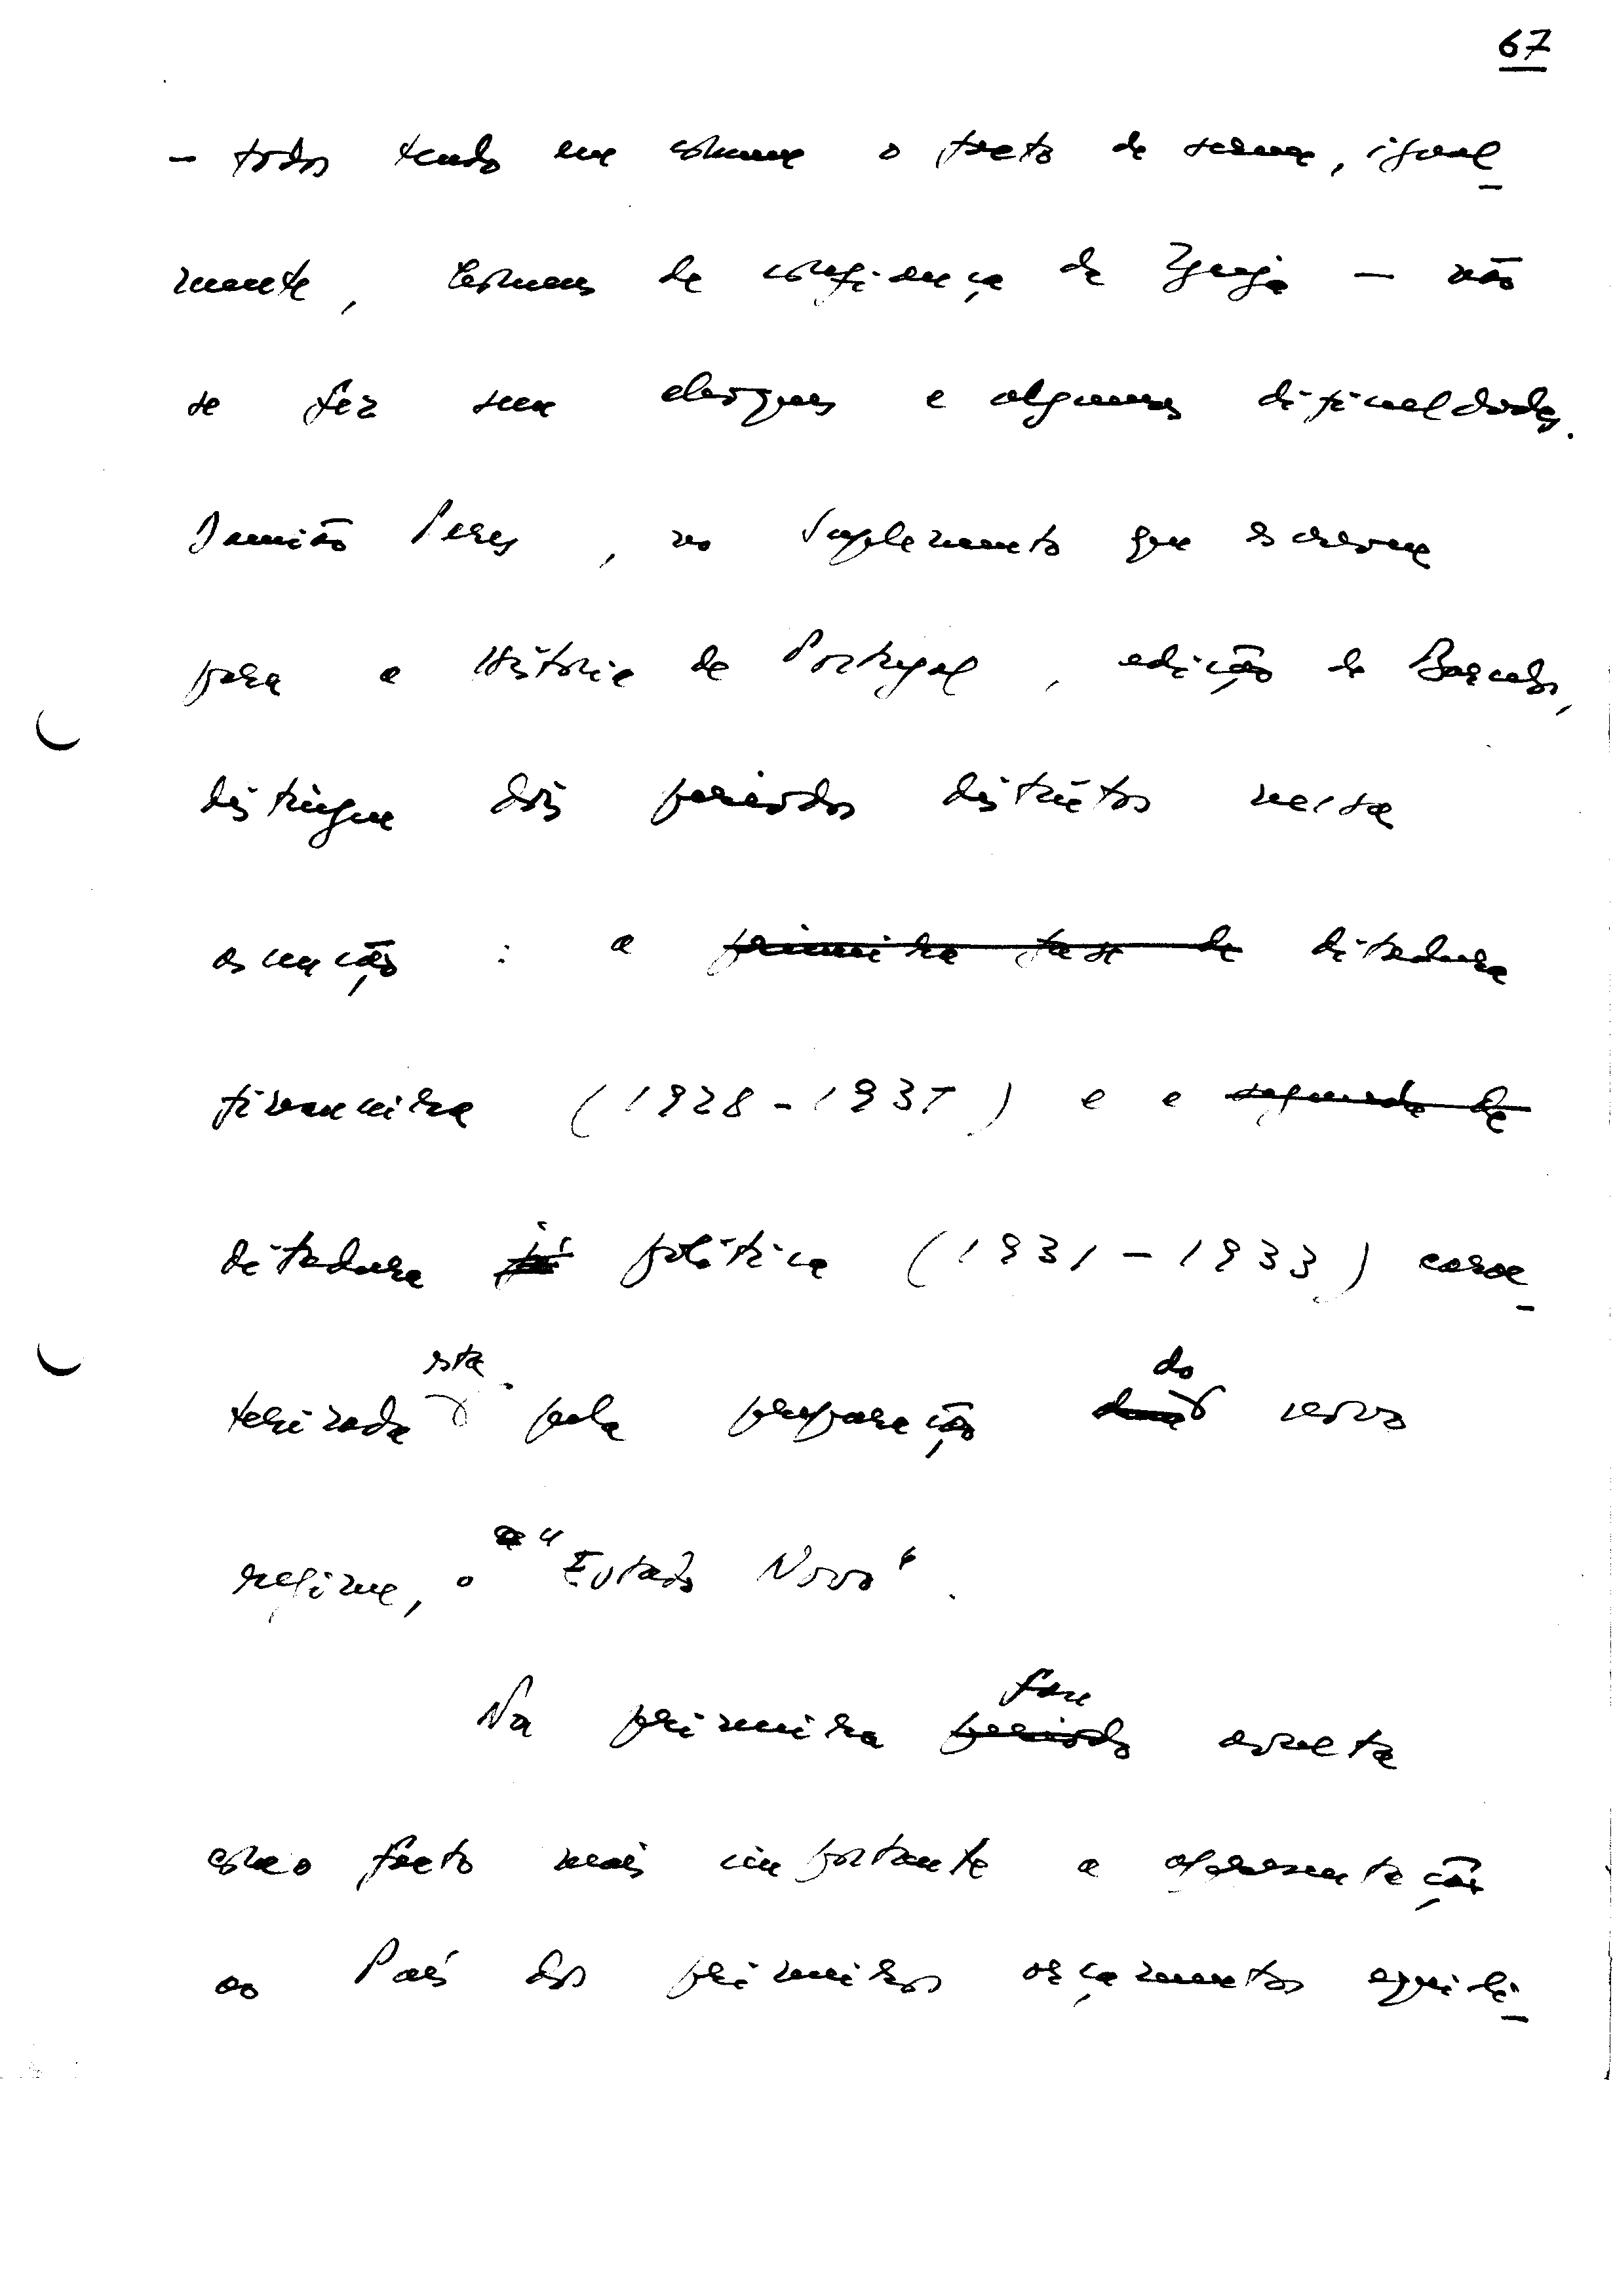 67
- todos tendo em comum o facto de serem, igual-
mente, homens de confiança da Igreja - não
se fez sem choques e algumas dificuldades.
Damião Peres, no Suplemento que escreveu
para a História de Portugal, edição de Barcelos,
distingue dois períodos distintos nessa
ascensão: a primeira fase da ditadura
financeira (1928-1931) e a segunda da
ditadura já política (1931-1933) carac-
terizada esta pela preparação do novo
regime, o "Estado Novo".
Na primeira fase período avulta
como facto mais importante a apresentação
ao País dos primeiros orçamentos equili-